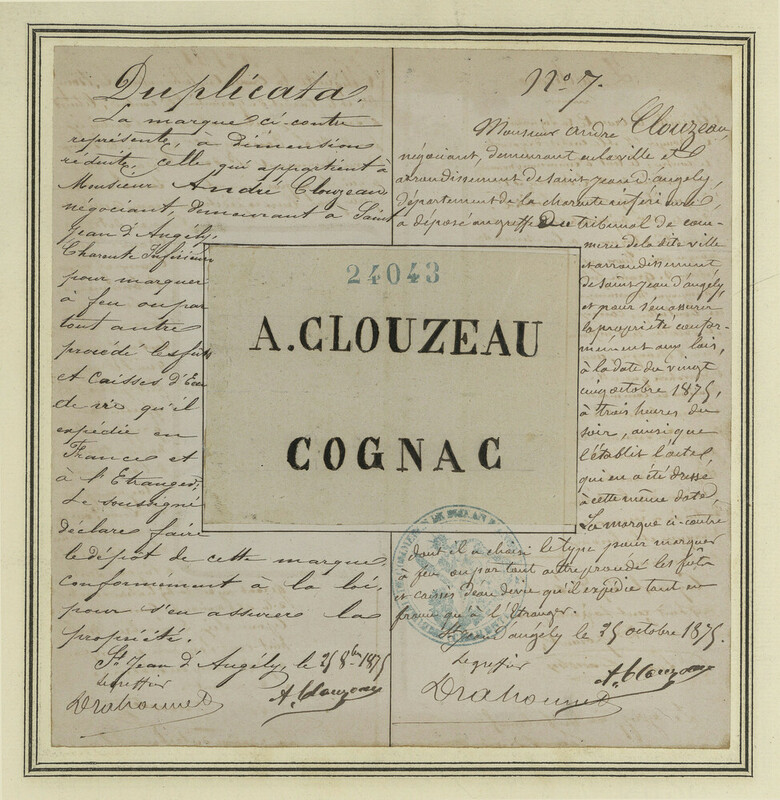 Duplicata.
La marque ci-contre
représente, à dimension
réduite, celle qui appartient à
Monsieur André Clouzeau
négociant, demeurant à Saint
Jean d'Angély,
Charente Inférieure
pour marquer
à feu ou par
tout autre
procédé les fûts
et caisses d'Eau
de vie qu'il
expédie en
France et
à l'Etranger,
Le soussigné
déclare faire
le dépôt de cette marque
conformément à la loi,
pour s'en assurer la
propriété.
St Jean d'Angély, le 25 8bre 1875
Le greffier
A. Clouzeau
24043
A.CLOUZEAU
COGNAC
No 7.
Monsieur André Clouzeau,
négociant, demeurant en la ville et
arrondissement de saint Jean d'angély,
département de la charente inférieure,
a déposé au greffe du tribunal de com-
merce de la dite ville
et arrondissement
de saint Jean d'angély,
et pour s'en assurer
la propriété confor-
mément aux lois,
à la date du vingt
cinq octobre 1875,
à trois heures du
soir, ainsi que
l'établit l'acte
qui en a été dressé
à cette même date,
La marque ci-contre
dont il a choisi le type pour marquer
à feu ou par tout autre procédé les fûts
et caisses d'eau de vie qu'il expédie tant en
france qu'à l'Etranger.
St Jean d'angély le 25 octobre 1875.
Le greffier
A. Clouzeau